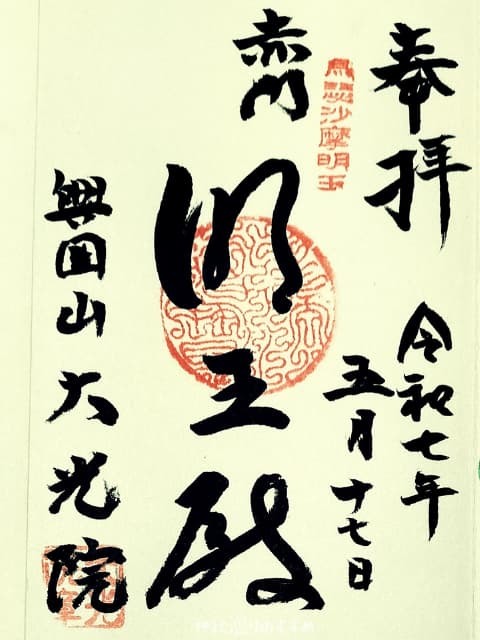 奉拝
令和七年
五月十七日
沙摩明王
赤門
明王殿
興国山大光院